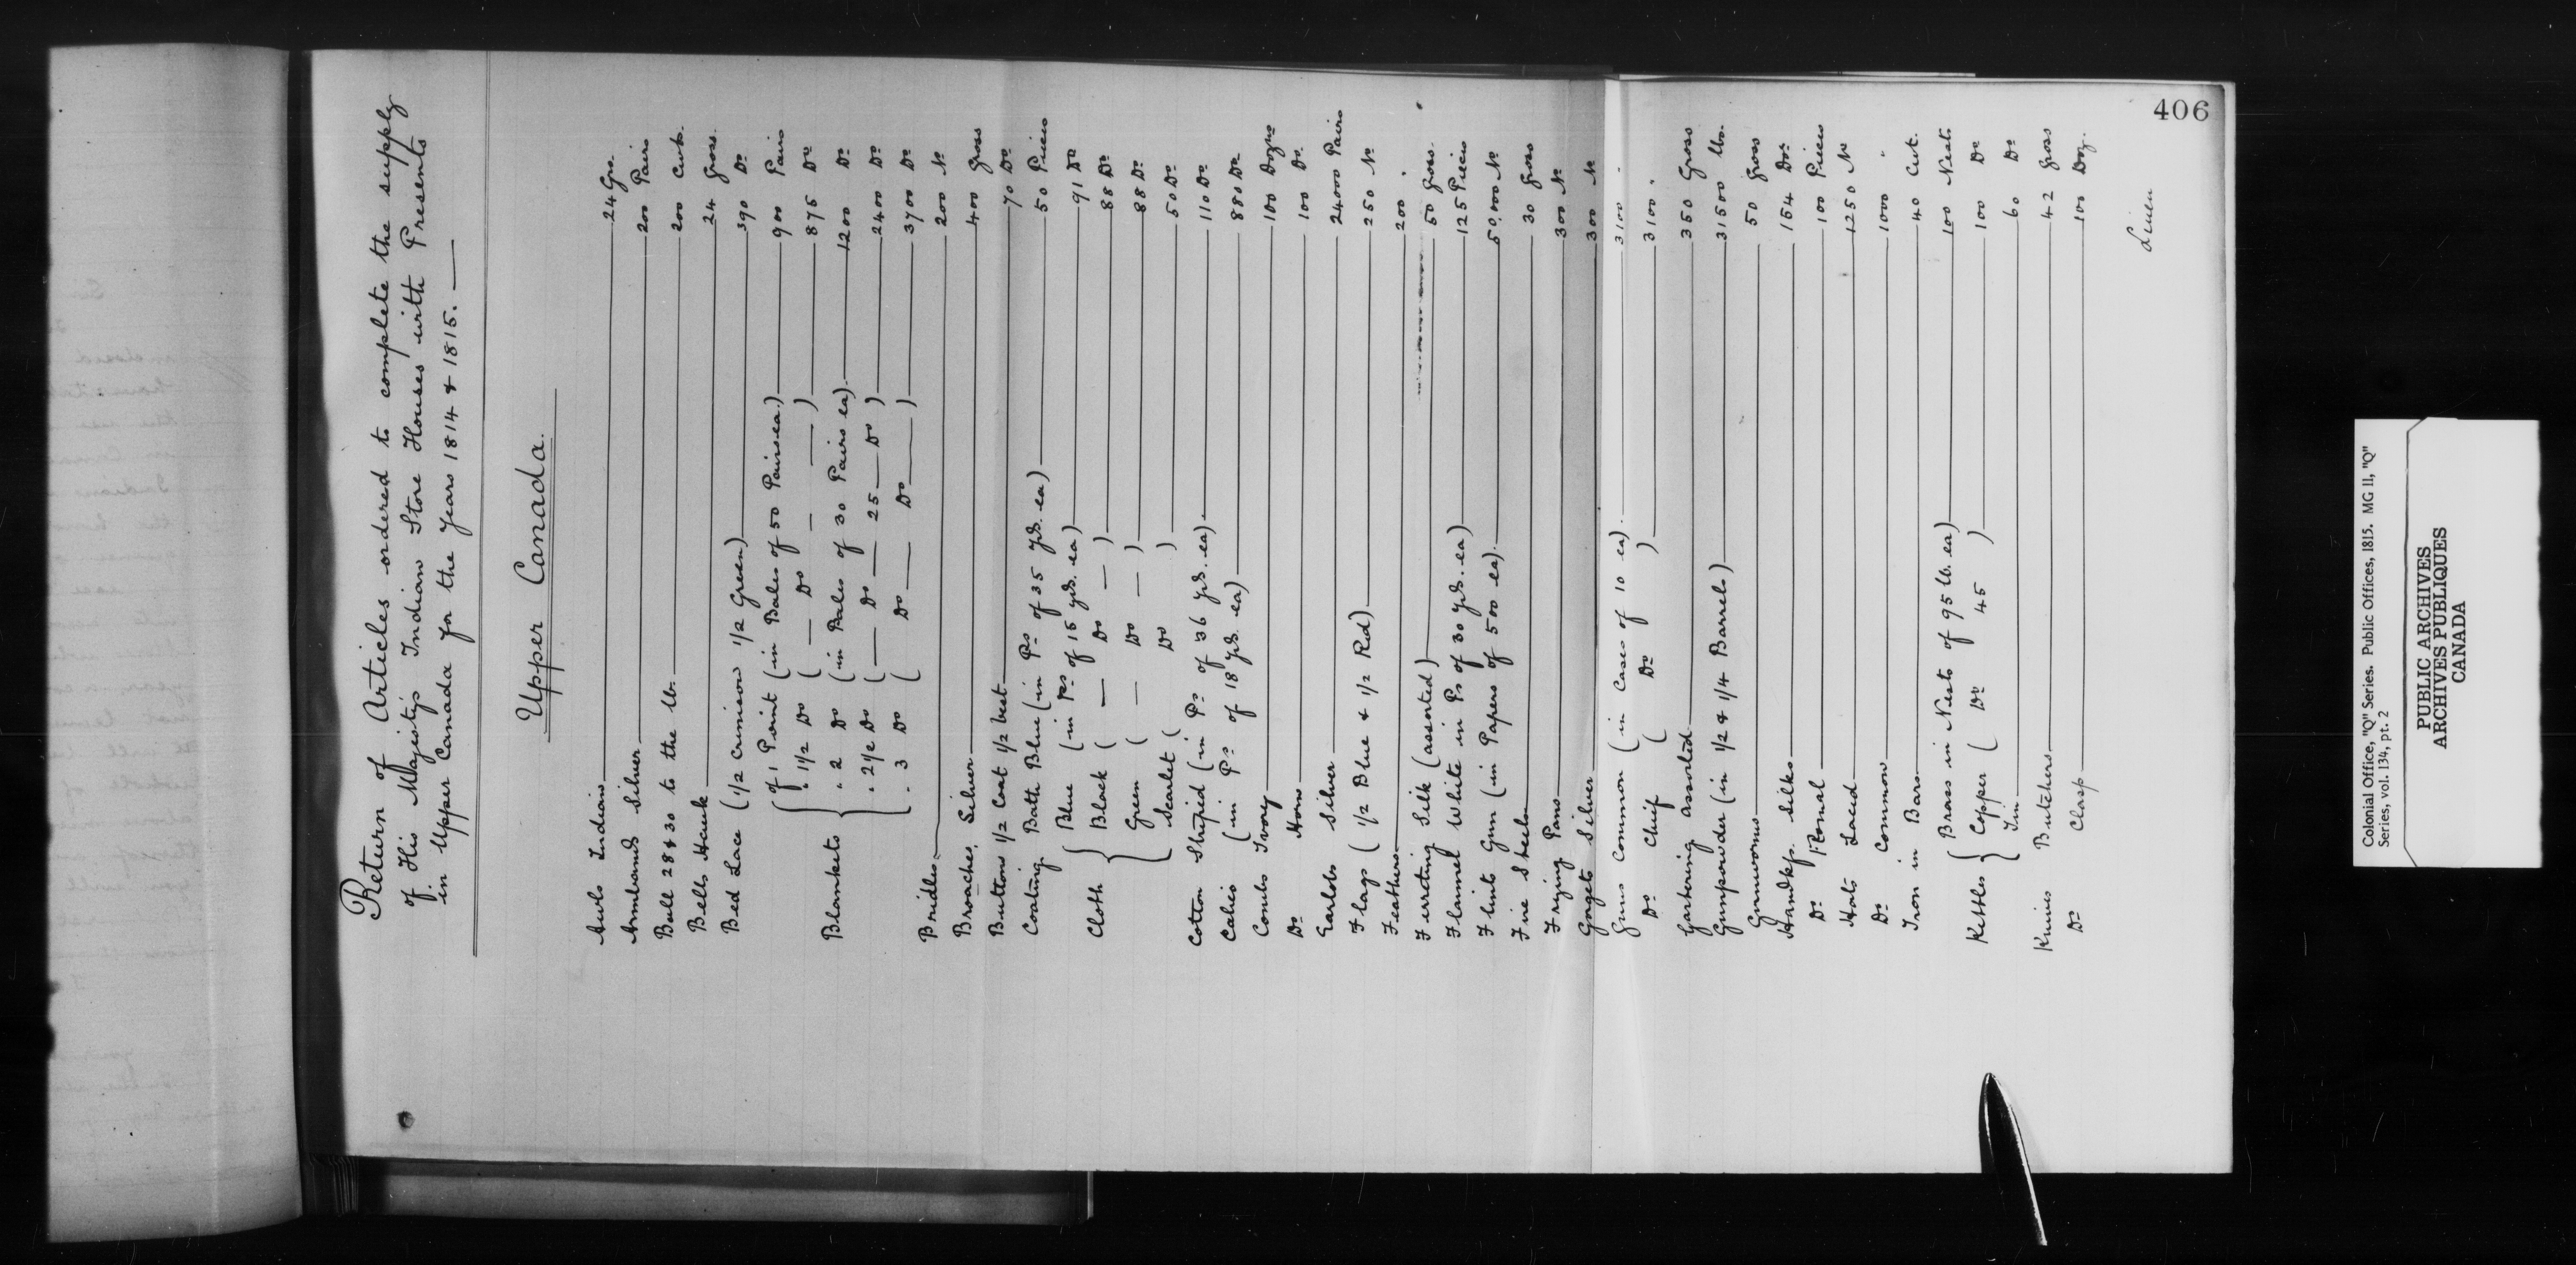 406
Return of Articles ordered to complete the supply
of His Majesty's Indian Store Houses with Presents
in Upper Canada for the Years 1814 & 1815.
Upper Canada.
Awls Indian 24 Gro.
Armbands Silver 200 Pairs
Ball 28 & 30 to the lb. 200 Cwt.
Bells Hawk 24 Gross.
Bed Lace (1/2 Crimson 1/2 Green) 390 Do
Blankets { of 1 Point (in Bales of 50 Pairs ea.) 900 Pairs
" 1 1/2 Do ( — Do — — ) 875 Do
" 2 Do (in Bales of 30 Pairs ea) 1200 Do
" 2 1/2 Do ( — Do — 25 — Do ) 2400 Do
" 3 Do ( Do — Do — ) 3700 Do
Bridles 200 No
Broaches, Silver 400 Gross
Buttons 1/2 Coat 1/2 best 70 Do
Coating Bath Blue (in Ps of 35 yds. ea) 50 Pieces
Cloth { Blue (in Ps of 15 yds. ea) 91 Do
Black ( — Do — ) 88 Do
Green ( — Do — ) 88 Do
Scarlet ( Do ) 50 Do
Cotton Striped (in Ps of 36 yds. ea) 110 Do
Calico (in Ps of 18 yds. ea) 880 Do
Combs Ivory 100 Dozns
Do Horn 100 Do.
Earbobs Silver 24000 Pairs
Flags (1/2 Blue & 1/2 Red) 250 No
Feathers 200 "
Ferreting Silk (assorted) 50 Gross.
Flannel White in Ps of 30 yds. ea) 125 Pieces
Flints Gun (in Papers of 500 ea) 50,000 No
Fire Steels 30 Gross
Frying Pans 300 No
Gorgets Silver 300 No
Guns Common (in Cases of 10 ea) 3100 "
Do Chief ( Do ) 3100 "
Gartering assorted 350 Gross
Gunpowder (in 1/2 & 1/4 Barrels) 31500 lbs.
Gunworms 50 Gross
Handkfs. Silks 154 Dos
Do Romal 100 Pieces
Hats Laced 1250 No
Do Common 1000 "
Iron in Bars 40 Cwt.
Kettles { Brass in Nests of 95 lb. ea) 100 Nests
Copper ( Do of 45 ) 100 Do
Tin 60 Do
Knives Butchers 42 Gross
Do Clasp 100 Doz.
Linen
Colonial Office, "Q" Series. Public Offices, 1815. MG 11, "Q"
Series, vol. 134, pt. 2
PUBLIC ARCHIVES
ARCHIVES PUBLIQUES
CANADA